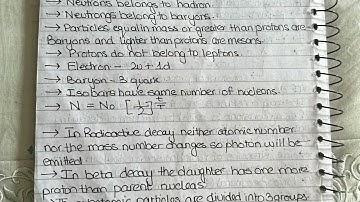 → Neutrons belongs to hadron.
→ Neutrons belong to baryons.
→ Particles equal in mass or greater than protons are
Baryons and lighter than protons are mesons.
→ Protons do not belong to leptons.
→ Electron - 2u + 1d
→ Baryon - 3 quark
→ Isobars have same number of nucleons.
→ N = No [1/2] t/T
→ In Radioactive decay neither atomic number
nor the mass number changes so photon will be
emitted
→ In beta decay the daughter has one more
proton than parent nucleas
→ If subatomic particles are divided into 3 groups